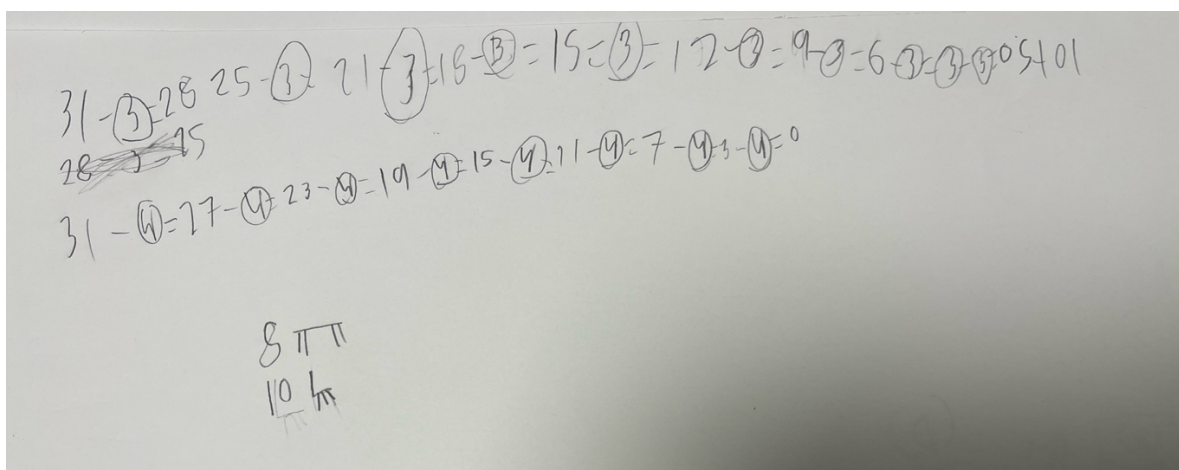 31 - 3 = 28 25 - 3 - 21 - 3 = 18 - 3 = 15 = 3 = 12 - 3 = 9 - 3 = 6 - 3 = 3 - 3 = 0
28 25
31 - 4 = 27 - 4 = 23 - 4 = 19 - 4 = 15 - 4 = 11 - 4 = 7 - 4 = 3 - 4 = 0
8
10